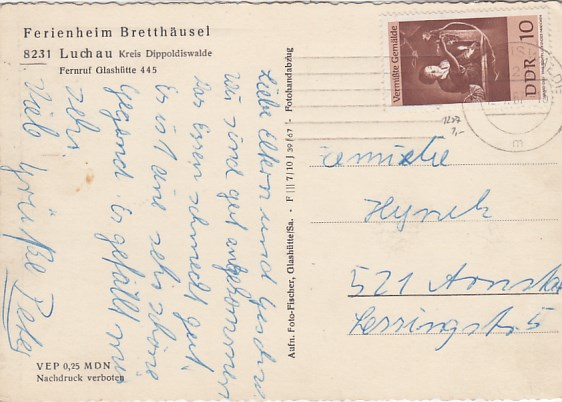 Ferienheim Bretthäusel
8231 Luchau Kreis Dippoldiswalde
Fernruf Glashütte 445
Liebe Eltern und
wir sind gut angekommen
das Essen schmeckt gut.
Es ist eine sehr schöne
Gegend. Es gefällt mir
sehr.
Viele Grüße Peter
VEP 0,25 MDN
Nachdruck verboten
Aufn. Foto-Fischer, Glashütte/Sa. - F III 7/10 J 39/67 - Fotohandabzug
Vermißte Gemälde
DDR 10
Familie
Hynek
521 Arnsta
Lessingstr. 5